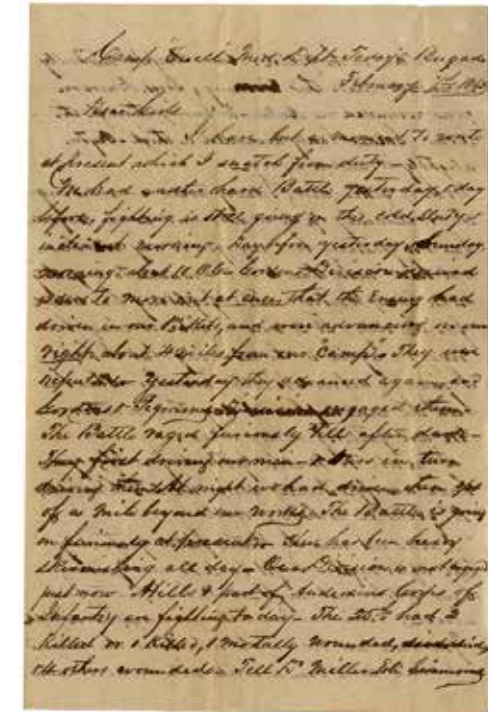 Camp Ewell Med. Dept. Terry's Brigade
February
Dear
I have but a moment to write
at present which I snatch from duty –
We had another hard Battle yesterday & day
before, fighting is still going on this cold
morning – day before yesterday, Sunday
morning about 11 Oclk Gordons Division received
orders to move out at once, that the Enemy had
driven in our Pickets, and were advancing on our
right about 4 miles from our "Camp". They were
Yesterday they advanced again, and
Gordons & Pegrams engaged them –
The Battle raged furiously till after dark –
They first driving our men – & in turn
driving them. At night we had driven them
of a mile beyond our works. The Battle is going
on furiously at present – There has been heavy
skirmishing all day – Our Division is not
just now Hills & part of Andersons Corps of
Infantry are fighting to day – The had 2
Killed or 1 Killed, 1 mortally wounded,
others wounded – Tell Dr Miller